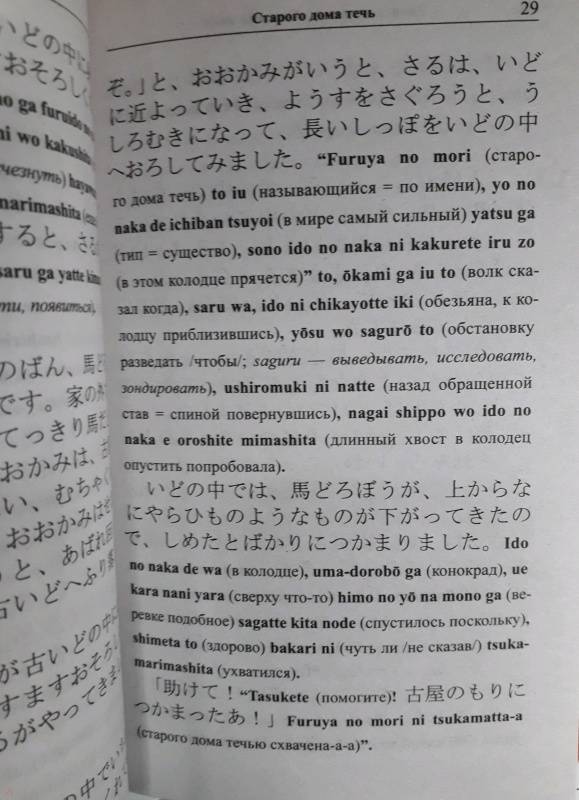 いどの中に
おそろしく
no ga furuido no
ni wo kakushi
чезнуть)
marimashita
すると、さる
saru ga yatte
ти, появиться),
のばん、馬ど
です。家の外
てっきり馬だ
おかみは、
い、むちゃく
おおかみは
うと、あばれ
古いどへふり
が古いどの中に
すますおそろし
るがやってきま
の中で
Старого дома течь
29
ぞ。」と、おおかみがいうと、さるは、いど
に近よっていき、ようすをさぐろうと、う
しろむきになって、長いしっぽをいどの中
へおろしてみました。“Furuya no mori (старо-
го дома течь) to iu (называющийся = по имени), yo no
naka de ichiban tsuyoi (в мире самый сильный) yatsu ga
(тип = существо), sono ido no naka ni kakurete iru zo
(в этом колодце прячется)” to, ōkami ga iu to (волк ска-
зал когда), saru wa, ido ni chikayotte iki (обезьяна, к ко-
лодцу приблизившись), yōsu wo sagurō to (обстановку
разведать /чтобы/; saguru — выведывать, исследовать,
зондировать), ushiromuki ni natte (назад обращенной
став = спиной повернувшись), nagai shippo wo ido no
naka e oroshite mimashita (длинный хвост в колодец
опустить попробовала).
いどの中では、馬どろぼうが、上からな
にやらひものようなものが下がってきたの
で、しめたとばかりにつかまりました。Ido
no naka de wa (в колодце), uma-dorobō ga (конокрад), ue
kara nani yara (сверху что-то) himo no yō na mono ga (ве-
ревке подобное) sagatte kita node (спустилось поскольку),
shimeta to (здорово) bakari ni (чуть ли /не сказав/) tsuka-
marimashita (ухватился).
「助けて！“Tasukete (помогите)! 古屋のもりに
つかまったあ！」Furuya no mori ni tsukamatta-a
(старого дома течью схвачена-а-а)”.